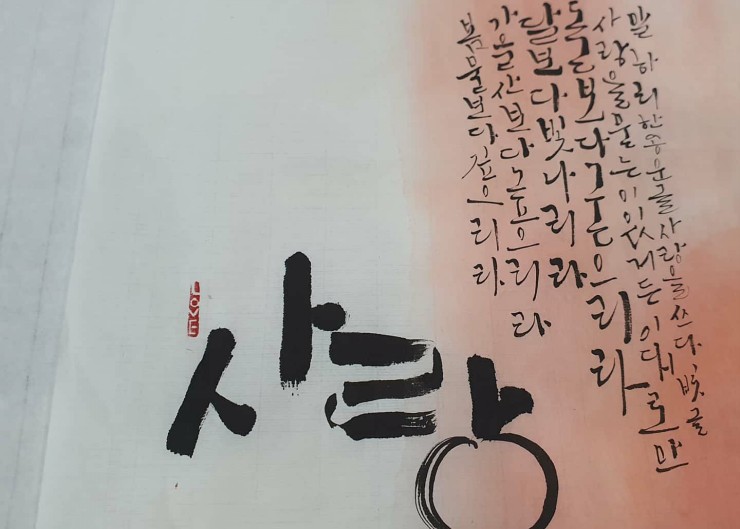 봄물보다 깊으리라
가을산보다 높으리라
달보다 빛나리라
돌보다 굳으리라
사랑을 묻는 이 있거든 이대로만
말하리 한용운글 사랑을 쓰다. 벗글
LOVE
사랑